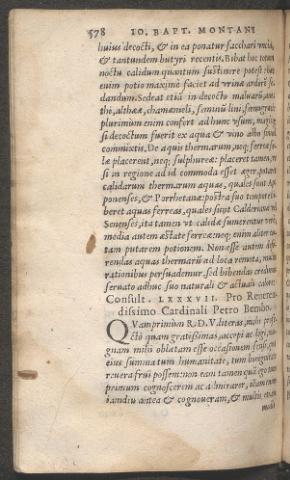 578 IO. BAPT. MONTANI
huius decocti, & in ea ponatur sacchari uncia,
& tantundem butyri recentis. Bibat hoc totum
noctu calidum quantum sustinere potest. hæc
enim potio maxime faciet ad urinæ ardorē se-
dandum. Sedeat etiā in decocto maluarū,
thi, altheæ, chamæmeli, seminū lini,
plurimum enim confert ad hunc usum, magisq;
si decoctum fuerit ex aqua & uino albo simul
commixtis. De aquis thermarum, neq; ferreæ
læ placerent, neq; sulphureæ: placeret tamen, ut
si in regione ad id commoda esset æger, potaret
calidarum thermarum aquas, quales sunt Ap-
ponenses, & Porrhetanæ: postea suo tempore bi-
beret aquas ferreas, quales sunt Calderianæ uel
Senenses, ita tamen ut calidæ sumerentur uere,
media autem æstate ferreæ: neq; enim alter
tam putarem potionem. Non esse autem diffe-
rendas aquas thermarū ad loca remota, multis
rationibus persuademur. sed bibendas credimus
seruato adhuc suo naturali & actuali calore.
Consult. LXXXVII. Pro Reueren-
dissimo Cardinali Petro Bembo.
QVamprimum R.D.V. literas, mihi profe-
ctò quam gratissimas, accepi ac legi,
gnam mihi oblatam esse occasionem sensi,
eius summa tum humanitate, tum benignitate
reuera frui possem: non eam tamen quā ego tum
primum cognoscerem ac admirarer, illam enim
iamdiu antea & cognoueram, & multis etiam